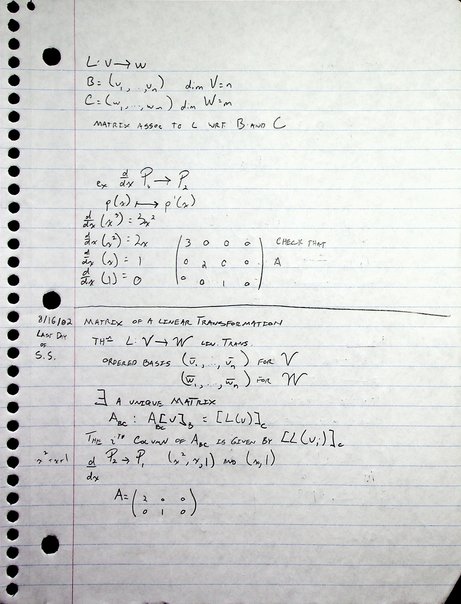 L: V → W
B = (v₁, ..., vₙ) dim V = n
C = (w₁, ..., wₘ) dim W = m
MATRIX ASSOC TO L WRT B AND C
ex d/dx P₃ → P₂
p(x) ↦ p'(x)
d/dx (x³) = 3x²
d/dx (x²) = 2x
d/dx (x) = 1
d/dx (1) = 0
( 3 0 0 0
0 2 0 0
0 0 1 0 )
CHECK THAT
A
8/16/02 MATRIX OF A LINEAR TRANSFORMATION
LAST DAY OF S.S.
THM L: V → W LIN. TRANS.
ORDERED BASIS (v̄₁, ..., v̄ₙ) FOR V
(w̄₁, ..., w̄ₘ) FOR W
∃ A UNIQUE MATRIX
A_BC : A_BC [v]_B = [L(v)]_C
THE iTH COLUMN OF A_BC IS GIVEN BY [L(vᵢ)]_C
x²+x+1
d/dx P₂ → P₁ (x², x, 1) AND (x, 1)
A = ( 2 0 0
0 1 0 )